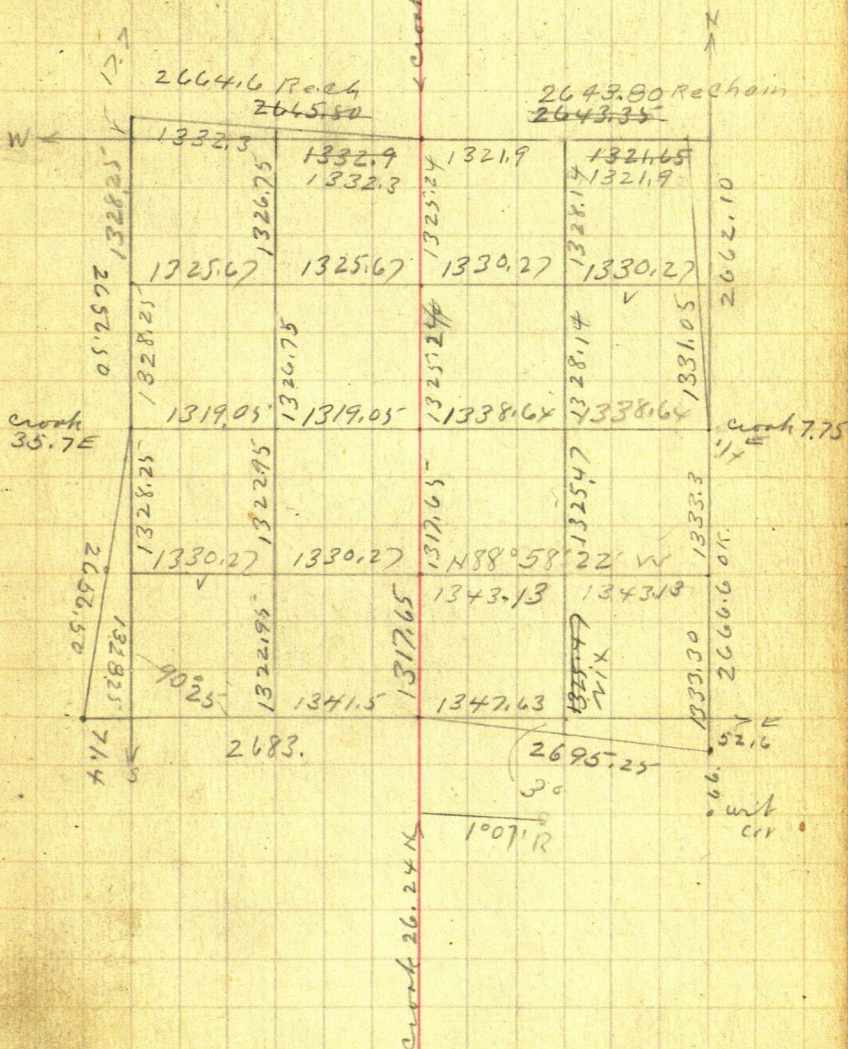 N
17.7
2664.6 Rech
2665.80
2643.80 Rechain
2643.35
W
1332.3
1332.9
1332.3
1321.9
1321.65
1321.9
1328.25
1326.75
1325.24
1328.14
2662.10
1325.67
1325.67
1330.27
1330.27
v
2656.50
1328.25
1326.75
1325.24
1328.14
1331.05
crook
35.7E
1319.05
1319.05
1338.64
1338.64
crook 7.75
1/4 E
1328.25
1322.95
1317.65
1325.47
1333.3
1330.27
v
1330.27
N88°58'22" W
1343.13
1343.13
2666.6 OK.
2656.50
1328.25
90°25
1322.95
1317.65
1325.47
Nix
1333.30
1341.5
1347.63
E
52.6
71.4
S
2683.
2695.25
3°
66.
wit
cor
1°07' R
crook 26.24 N